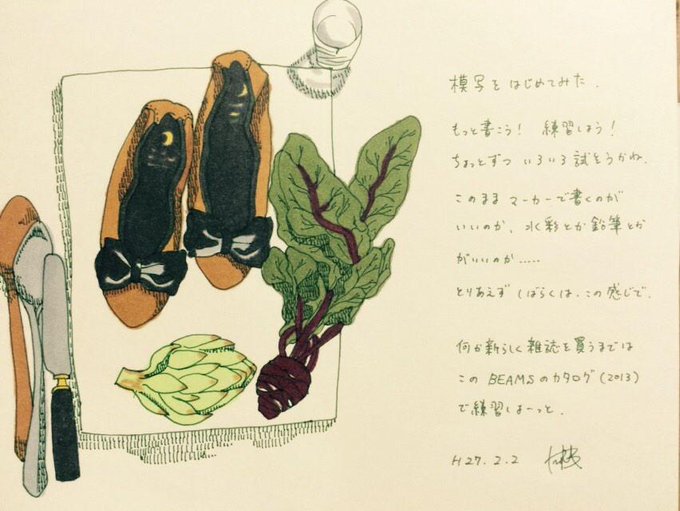 模写をはじめてみた.
もっと書こう! 練習しよう!
ちょっとずつ いろいろ試そうかね.
このまま マーカーで書くのが
いいのか、水彩とか鉛筆とか
がいいのか.....
とりあえず しばらくは、この感じで.
何か新らしく雑誌を買うまでは
この BEAMSのカタログ (2013)
で練習しよーっと.
H27.2.2